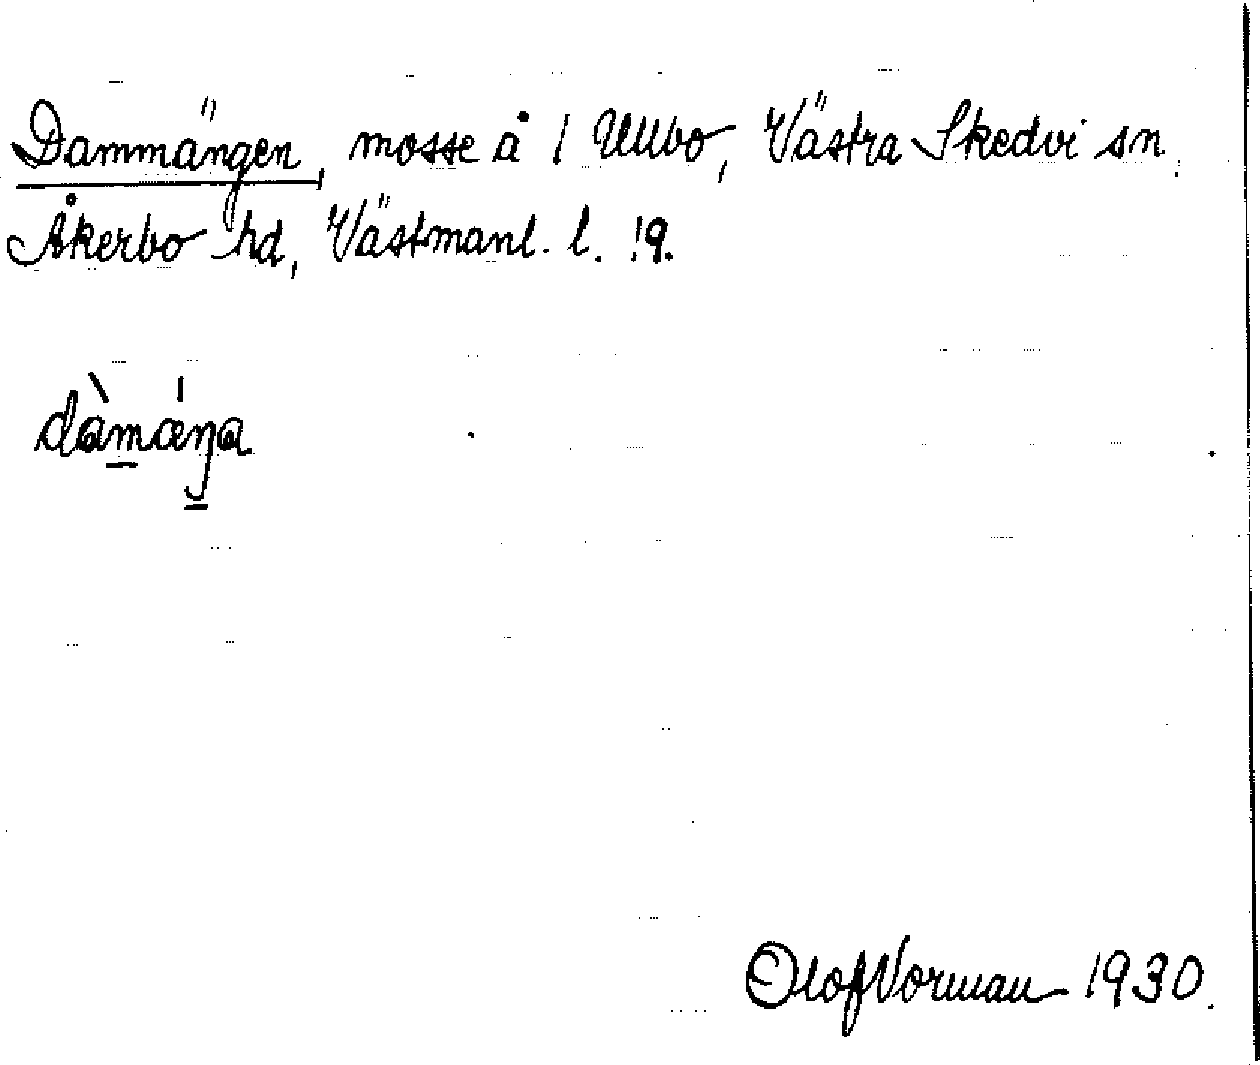 Dammängen, mosse å 1 Ullbo, Västra Skedvi sn,
Åkerbo hd, Västmanl. l. 19.
dàmæ̀ŋa
Olof Norman 1930.